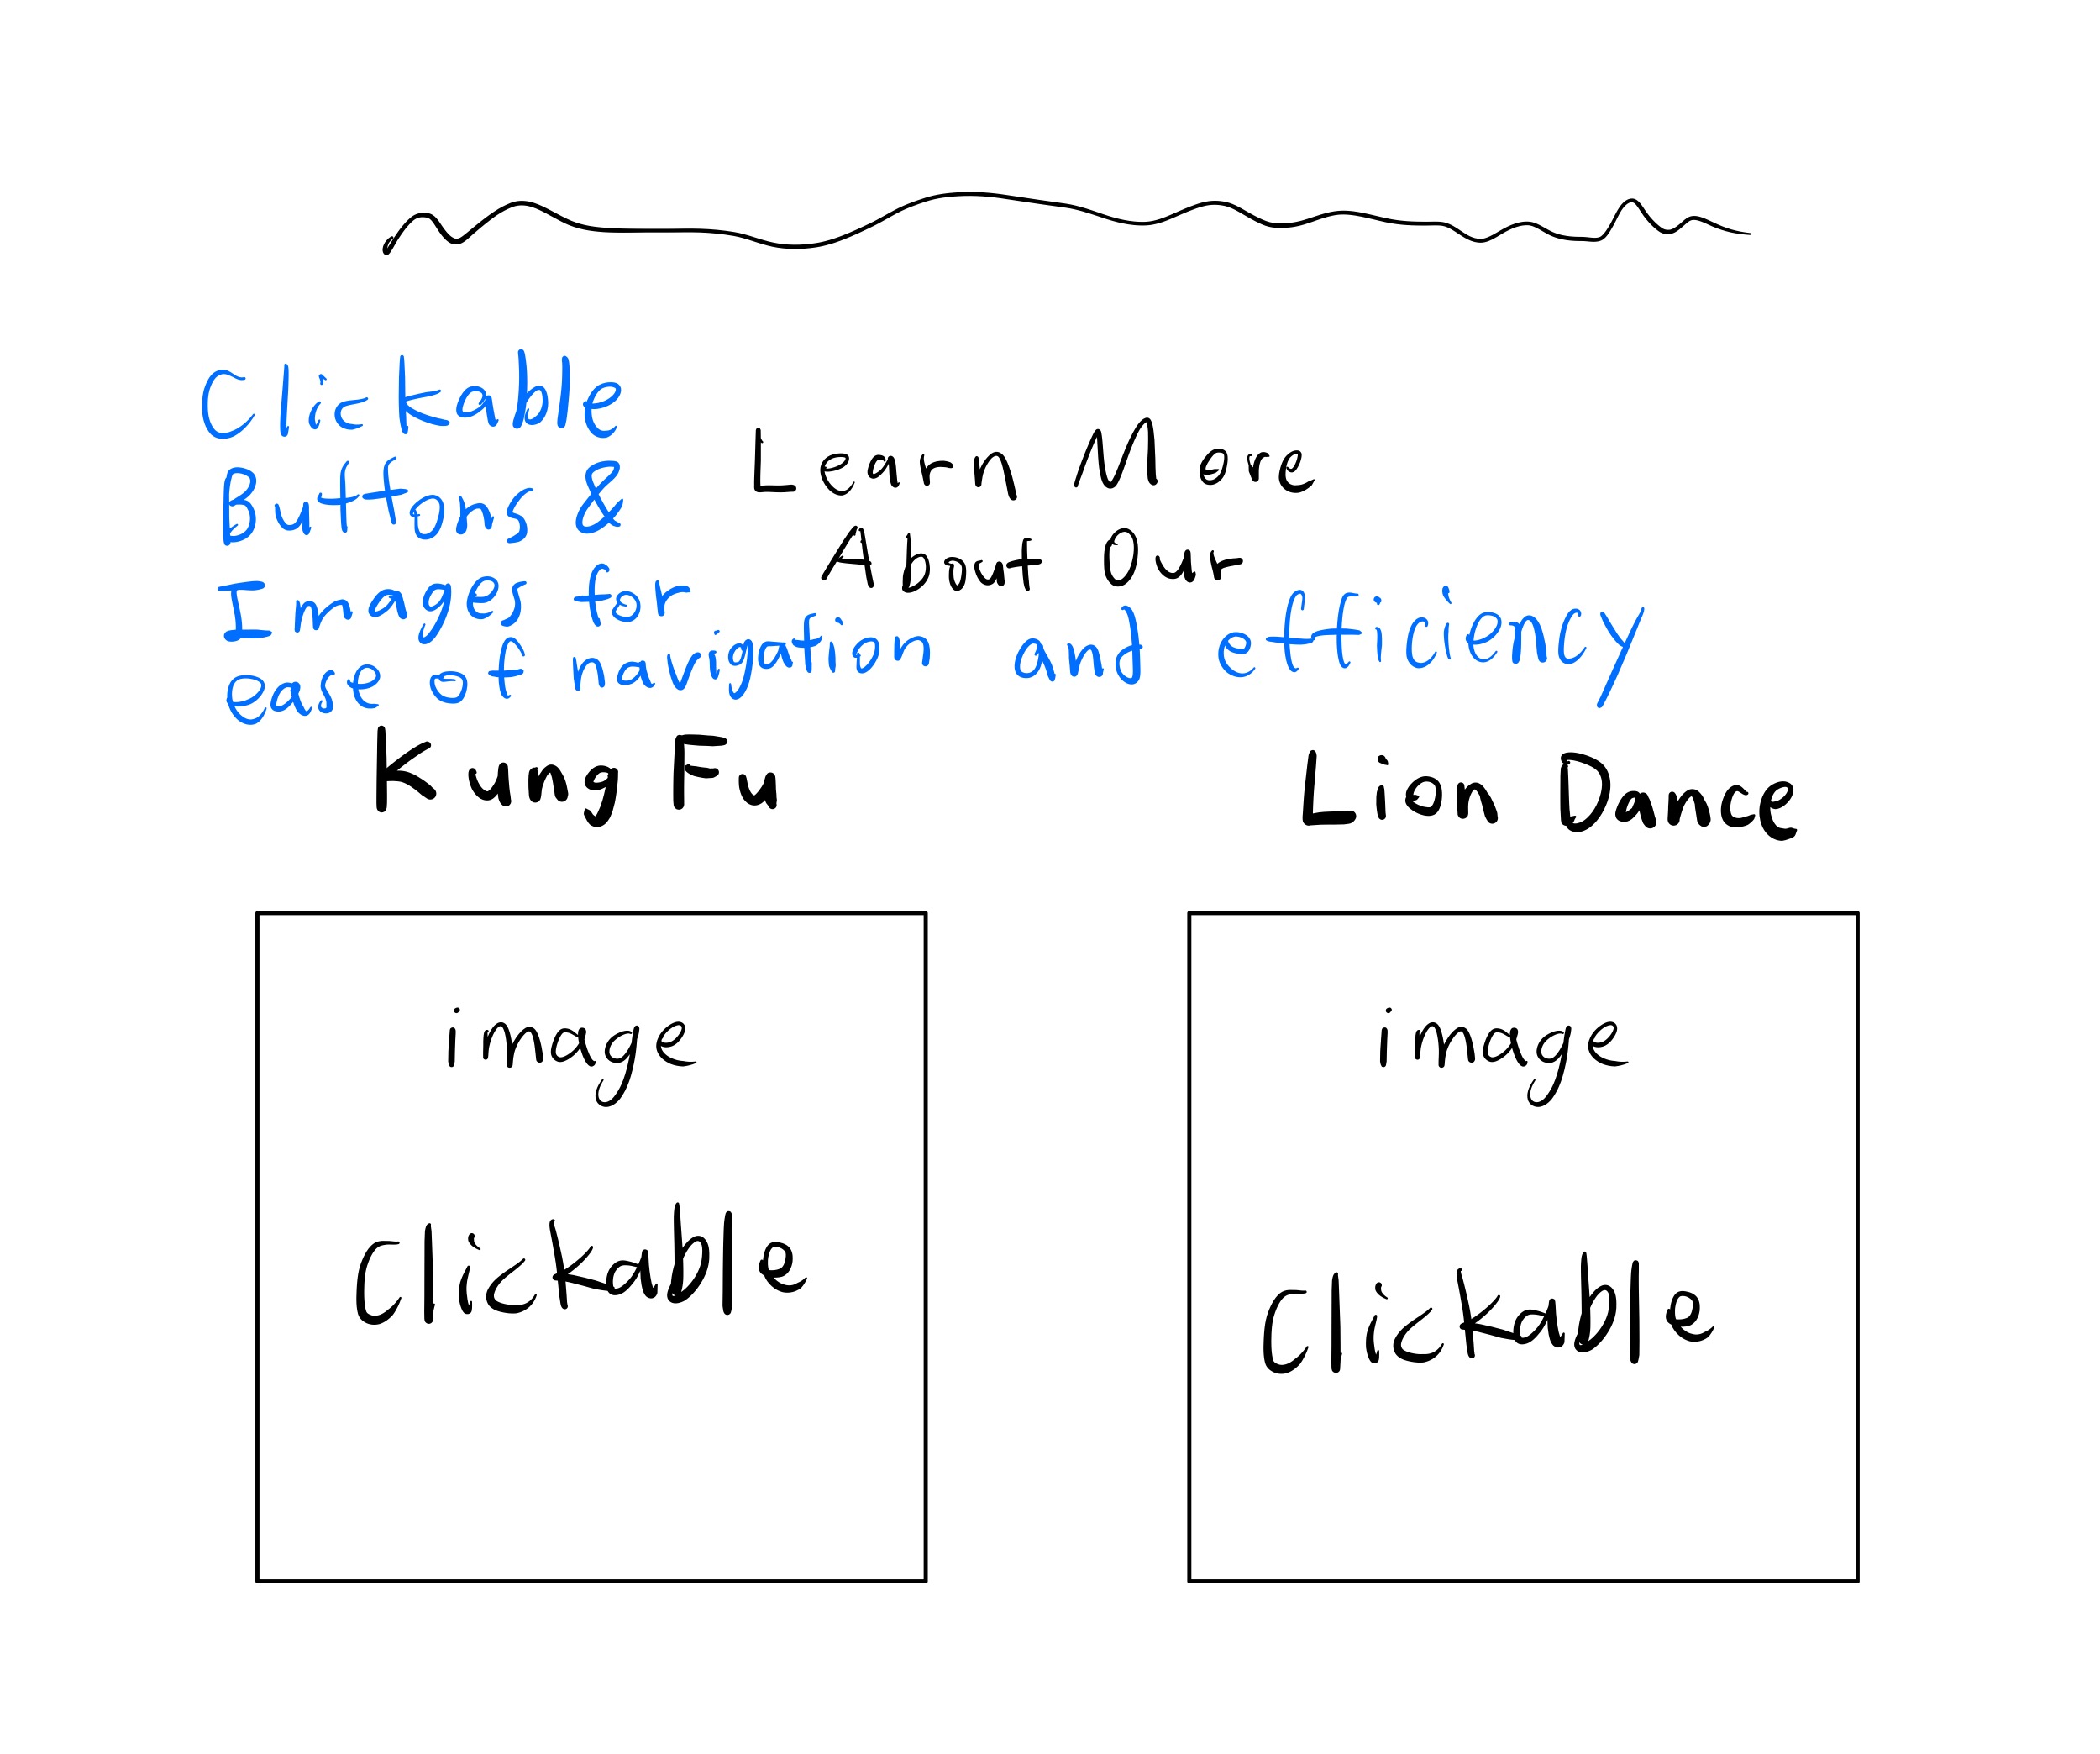 Clickable
Buttons &
Images for
ease of navigation and efficiency
Learn More
About Our
Kung Fu
Lion Dance
image
Clickable
image
Clickable